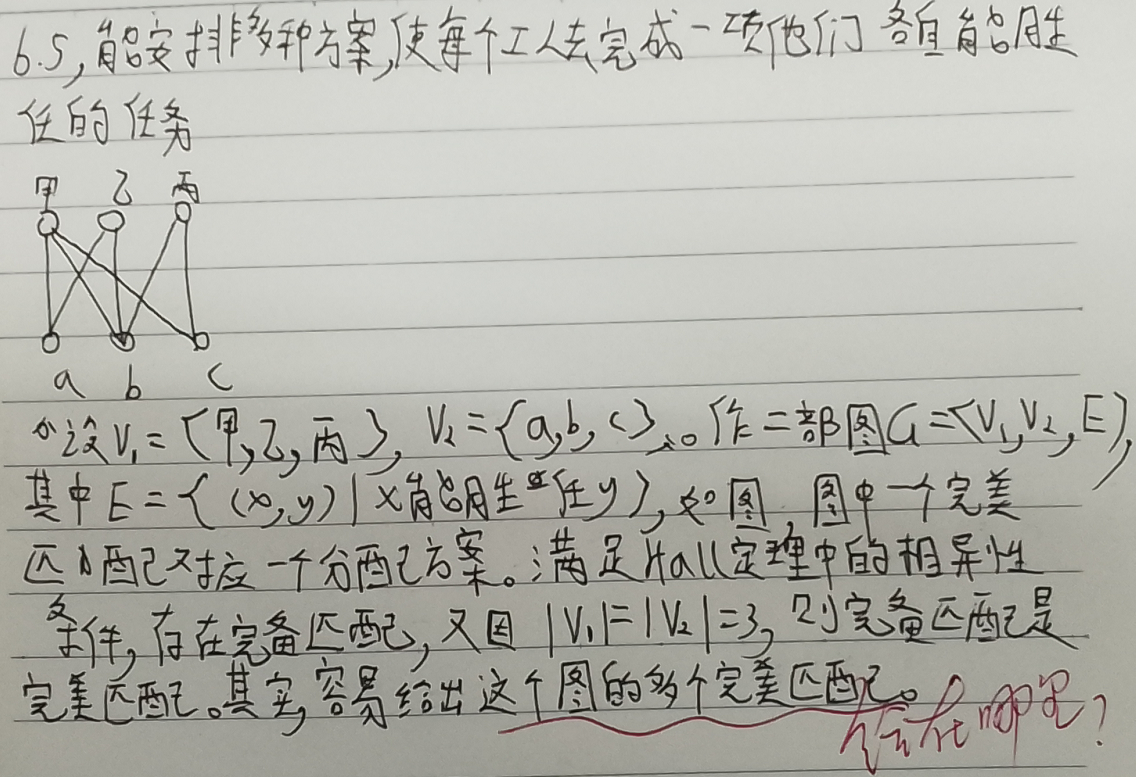 6.5,能安排多种方案,使每个工人去完成一项他们各自能胜
任的任务
甲 乙 丙
a b c
设V₁={甲,乙,丙}, V₂={a,b,c}。作二部图G=<V₁,V₂,E>,
其中E={(x,y)|x能胜任y},如图,图中一个完美
匹配对应一个分配方案。满足Hall定理中的相异性
条件,存在完备匹配,又因|V₁|=|V₂|=3,则完备匹配是
完美匹配。其实,容易给出这个图的多个完美匹配。
给在哪里?